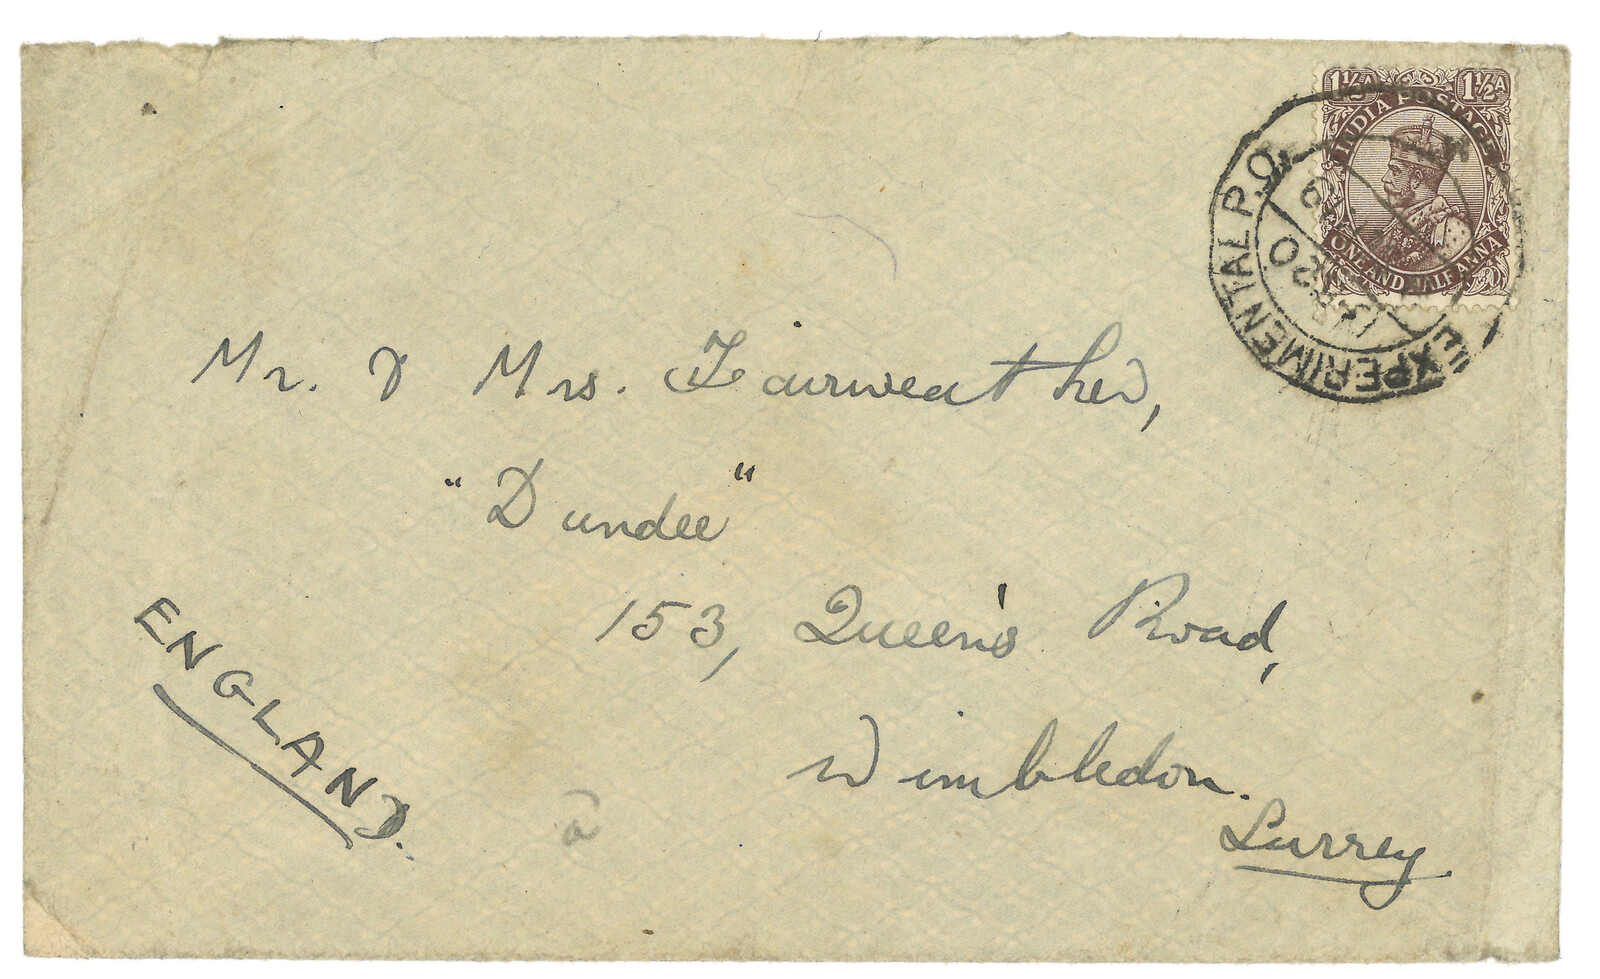 1½A 1½A
INDIA POSTAGE
ONE AND HALF ANNA
EXPERIMENTAL P.O.
Mr. & Mrs. Fairweather,
"Dundee"
153, Queen's Road,
Wimbledon.
Surrey
ENGLAND.